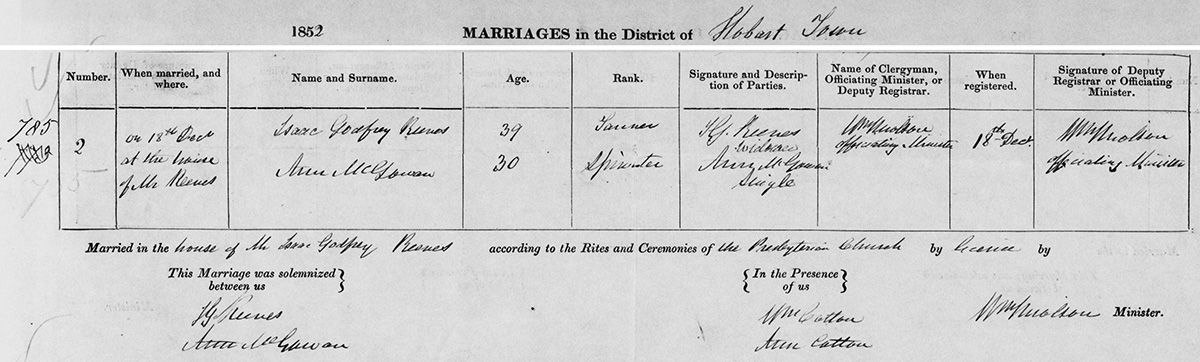 1852 MARRIAGES in the District of Hobart Town
Number. When married, and where. Name and Surname. Age. Rank. Signature and Description of Parties. Name of Clergyman, Officiating Minister, or Deputy Registrar. When registered. Signature of Deputy Registrar or Officiating Minister.
785
2
on 18th Decr at the house of Mr Reeves
Isaac Godfrey Reeves 39 Tanner I G. Reeves Widower
Ann McGowan 30 Spinster Ann McGowan Single
Wm Nicolson officiating Minister
18th Decr.
Wm Nicolson officiating Minister
Married in the house of Mr Isaac Godfrey Reeves according to the Rites and Ceremonies of the Presbyterian Church by licence by
This Marriage was solemnized between us
In the Presence of us
I G Reeves
Ann McGowan
Wm Cotton
Ann Cotton
Wm Nicolson Minister.